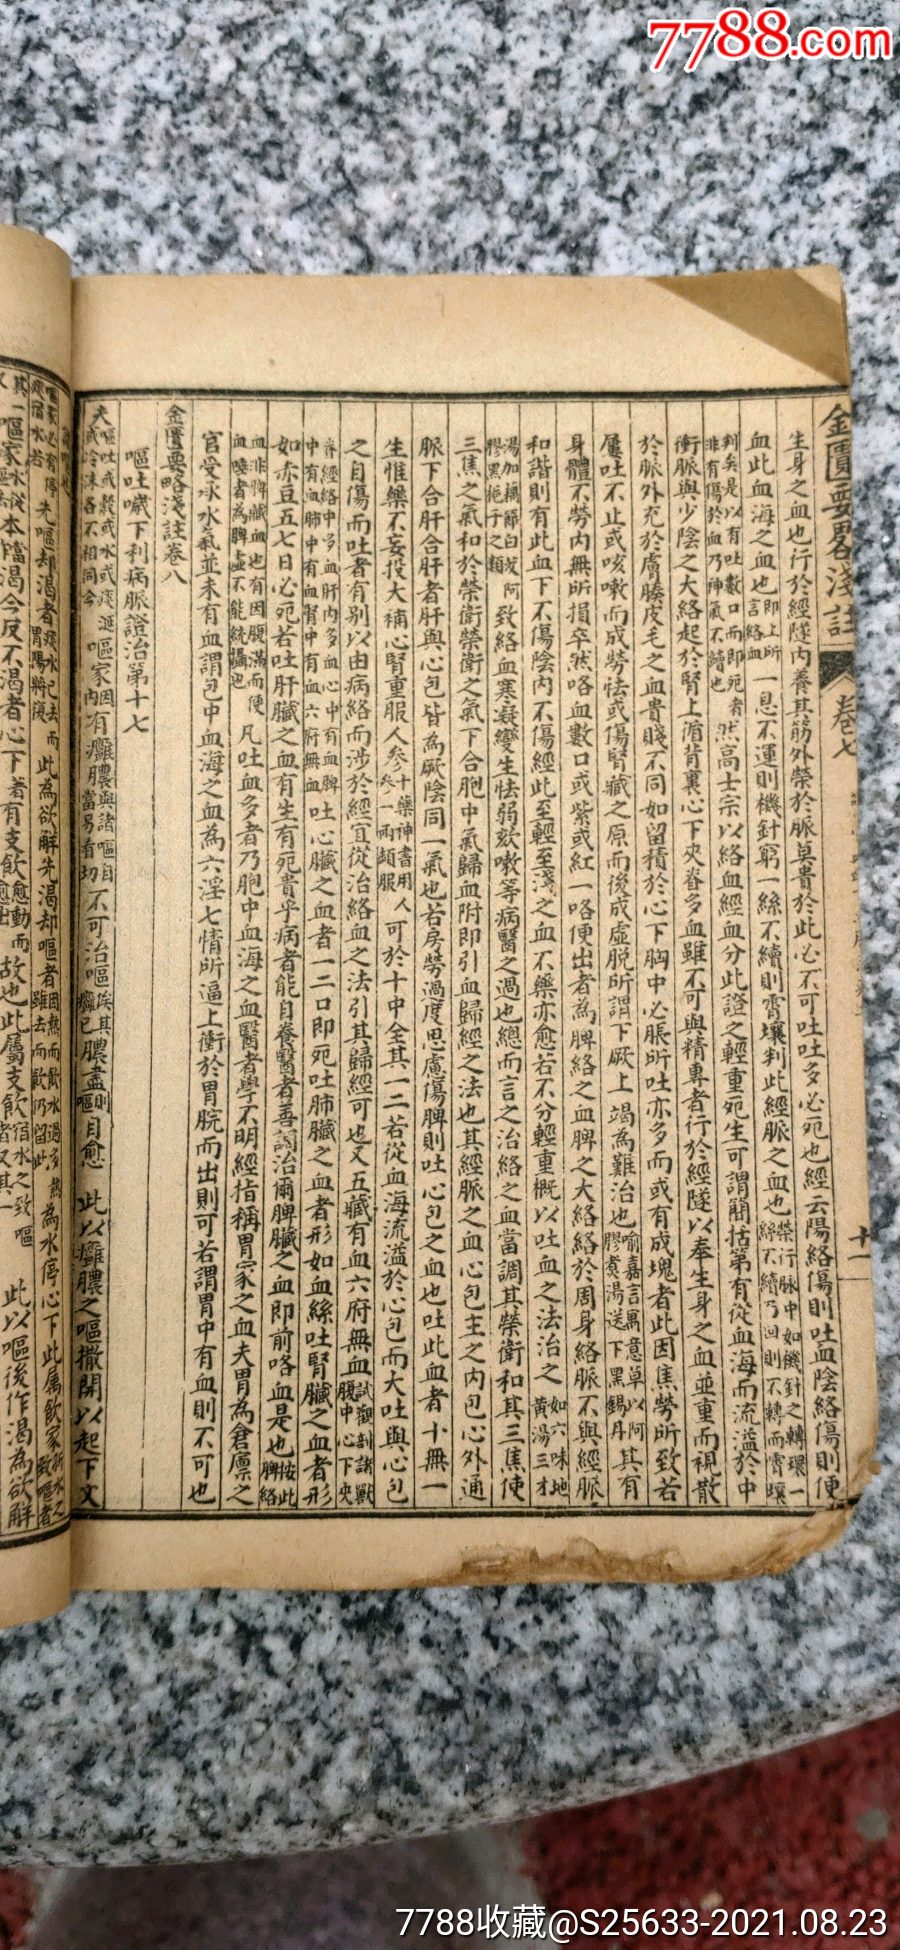 7788.com
金匱要畧淺註 卷七
十一
生身之血也行於經隧內養其筋外榮於脈莫貴於此必不可吐吐多必死也經云陽絡傷則吐血陰絡傷則便
血此血海之血也即上所言絡血一息不運則機針窮一絲不續則霄壤判此經脈之血也榮行脈中如機針之轉環一絲不續乃回則不轉而霄壤
判矣是以有吐數口而即死者非有傷於血乃神氣不續也然高士宗以絡血經血分此證之輕重死生可謂簡括第有從血海而流溢於中
衝脈與少陰之大絡起於腎上循背裏心下夾脊多血雖不可與精專者行於經隧以奉生身之血並重而視散
於脈外充於膚腠皮毛之血貴賤不同如留積於心下胸中必脹所吐亦多而或有成塊者此因焦勞所致若
屢吐不止或咳嗽而成勞怯或傷腎藏之原而後成虛脫所謂下厥上竭為難治也喻嘉言寓意草以阿膠煑湯送下黑錫丹其有
身體不勞內無所損卒然咯血數口或紫或紅一咯便出者為脾絡之血脾之大絡絡於周身絡脈不與經脈
和諧則有此血下不傷陰內不傷經此至輕至淺之血不藥亦愈若不分輕重概以吐血之法治之如六味地黃湯三才
湯加藕節白芨阿膠黑梔子之類致絡血寒凝變生怯弱欬嗽等病醫之過也總而言之治絡之血當調其榮衛和其三焦使
三焦之氣和於榮衛榮衛之氣下合胞中氣歸血附即引血歸經之法也其經脈之血心包主之內包心外通
脈下合肝合肝者肝與心包皆為厥陰同一氣也若房勞過度思慮傷脾則吐心包之血也吐此血者十無一
生惟藥不妄投大補心腎重服人參十藥神書用人參一兩頻服可於十中全其一二若從血海流溢於心包而大吐與心包
之自傷而吐者有別以由病絡而涉於經宜從治絡血之法引其歸經可也又五藏有血六府無血試觀剖諸獸腹中心下夾
脊經絡中多血肝內多血心中有血脾中有血肺中有血腎中有血六府無血吐心臟之血者一二口即死吐肺臟之血者形如血絲吐腎臟之血者形
如赤豆五七日必死若吐肝臟之血有生有死貴乎病者能自養醫者善調治爾脾臟之血即前咯血是也按此脾絡
血非脾臟血也有因腹滿而便血唾者為脾虛不能統攝也凡吐血多者乃胞中血海之血醫者學不明經指稱胃家之血夫胃為倉廪之
官受水氣並未有血謂包中血海之血為六淫七情所逼上衝於胃脘而出則可若謂胃中有血則不可也
金匱要略淺註卷八
嘔吐噦下利病脈證治第十七
夫嘔吐或穀或水或痰涎或冷沫各不相同今嘔家因內有癰膿與諸嘔自當易看切不可治嘔俟其癰已膿盡則嘔自愈 此以癰膿之嘔撇開以起下文
先嘔却渴者痰水已去而謂陽將復此為欲解先渴却嘔者因熱而飲水過多雖去而飲仍留此為水停心下此屬飲家
其一嘔家水從本當渴今反不渴者心下著有支飲故也此屬支飲 此以嘔後作渴為欲解
7788收藏@S25633-2021.08.23